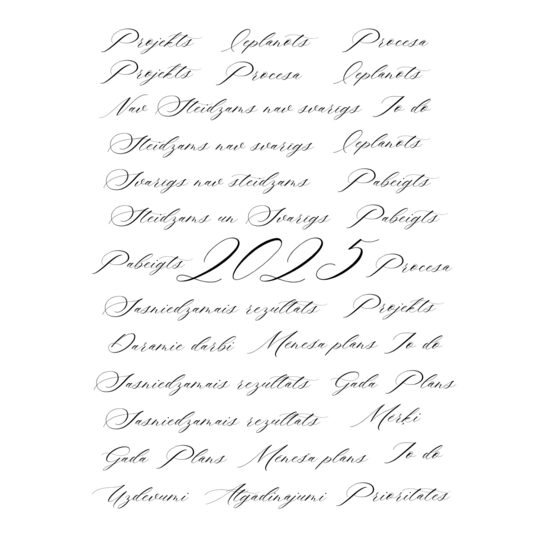 Projekts Ieplanots Procesa
Projekts Procesa Ieplanots
Nav Steidzams nav svarigs To do
Steidzams nav svarigs Ieplanots
Svarigs nav steidzams Pabeigts
Steidzams un Svarigs Pabeigts
Pabeigts 2025 Procesa
Sasniedzamais rezultats Projekts
Daramie darbi Menesa plans To do
Sasniedzamais rezultats Gada Plans
Sasniedzamais rezultats Merki
Gada Plans Menesa plans To do
Uzdevumi Atgadinajumi Prioritates